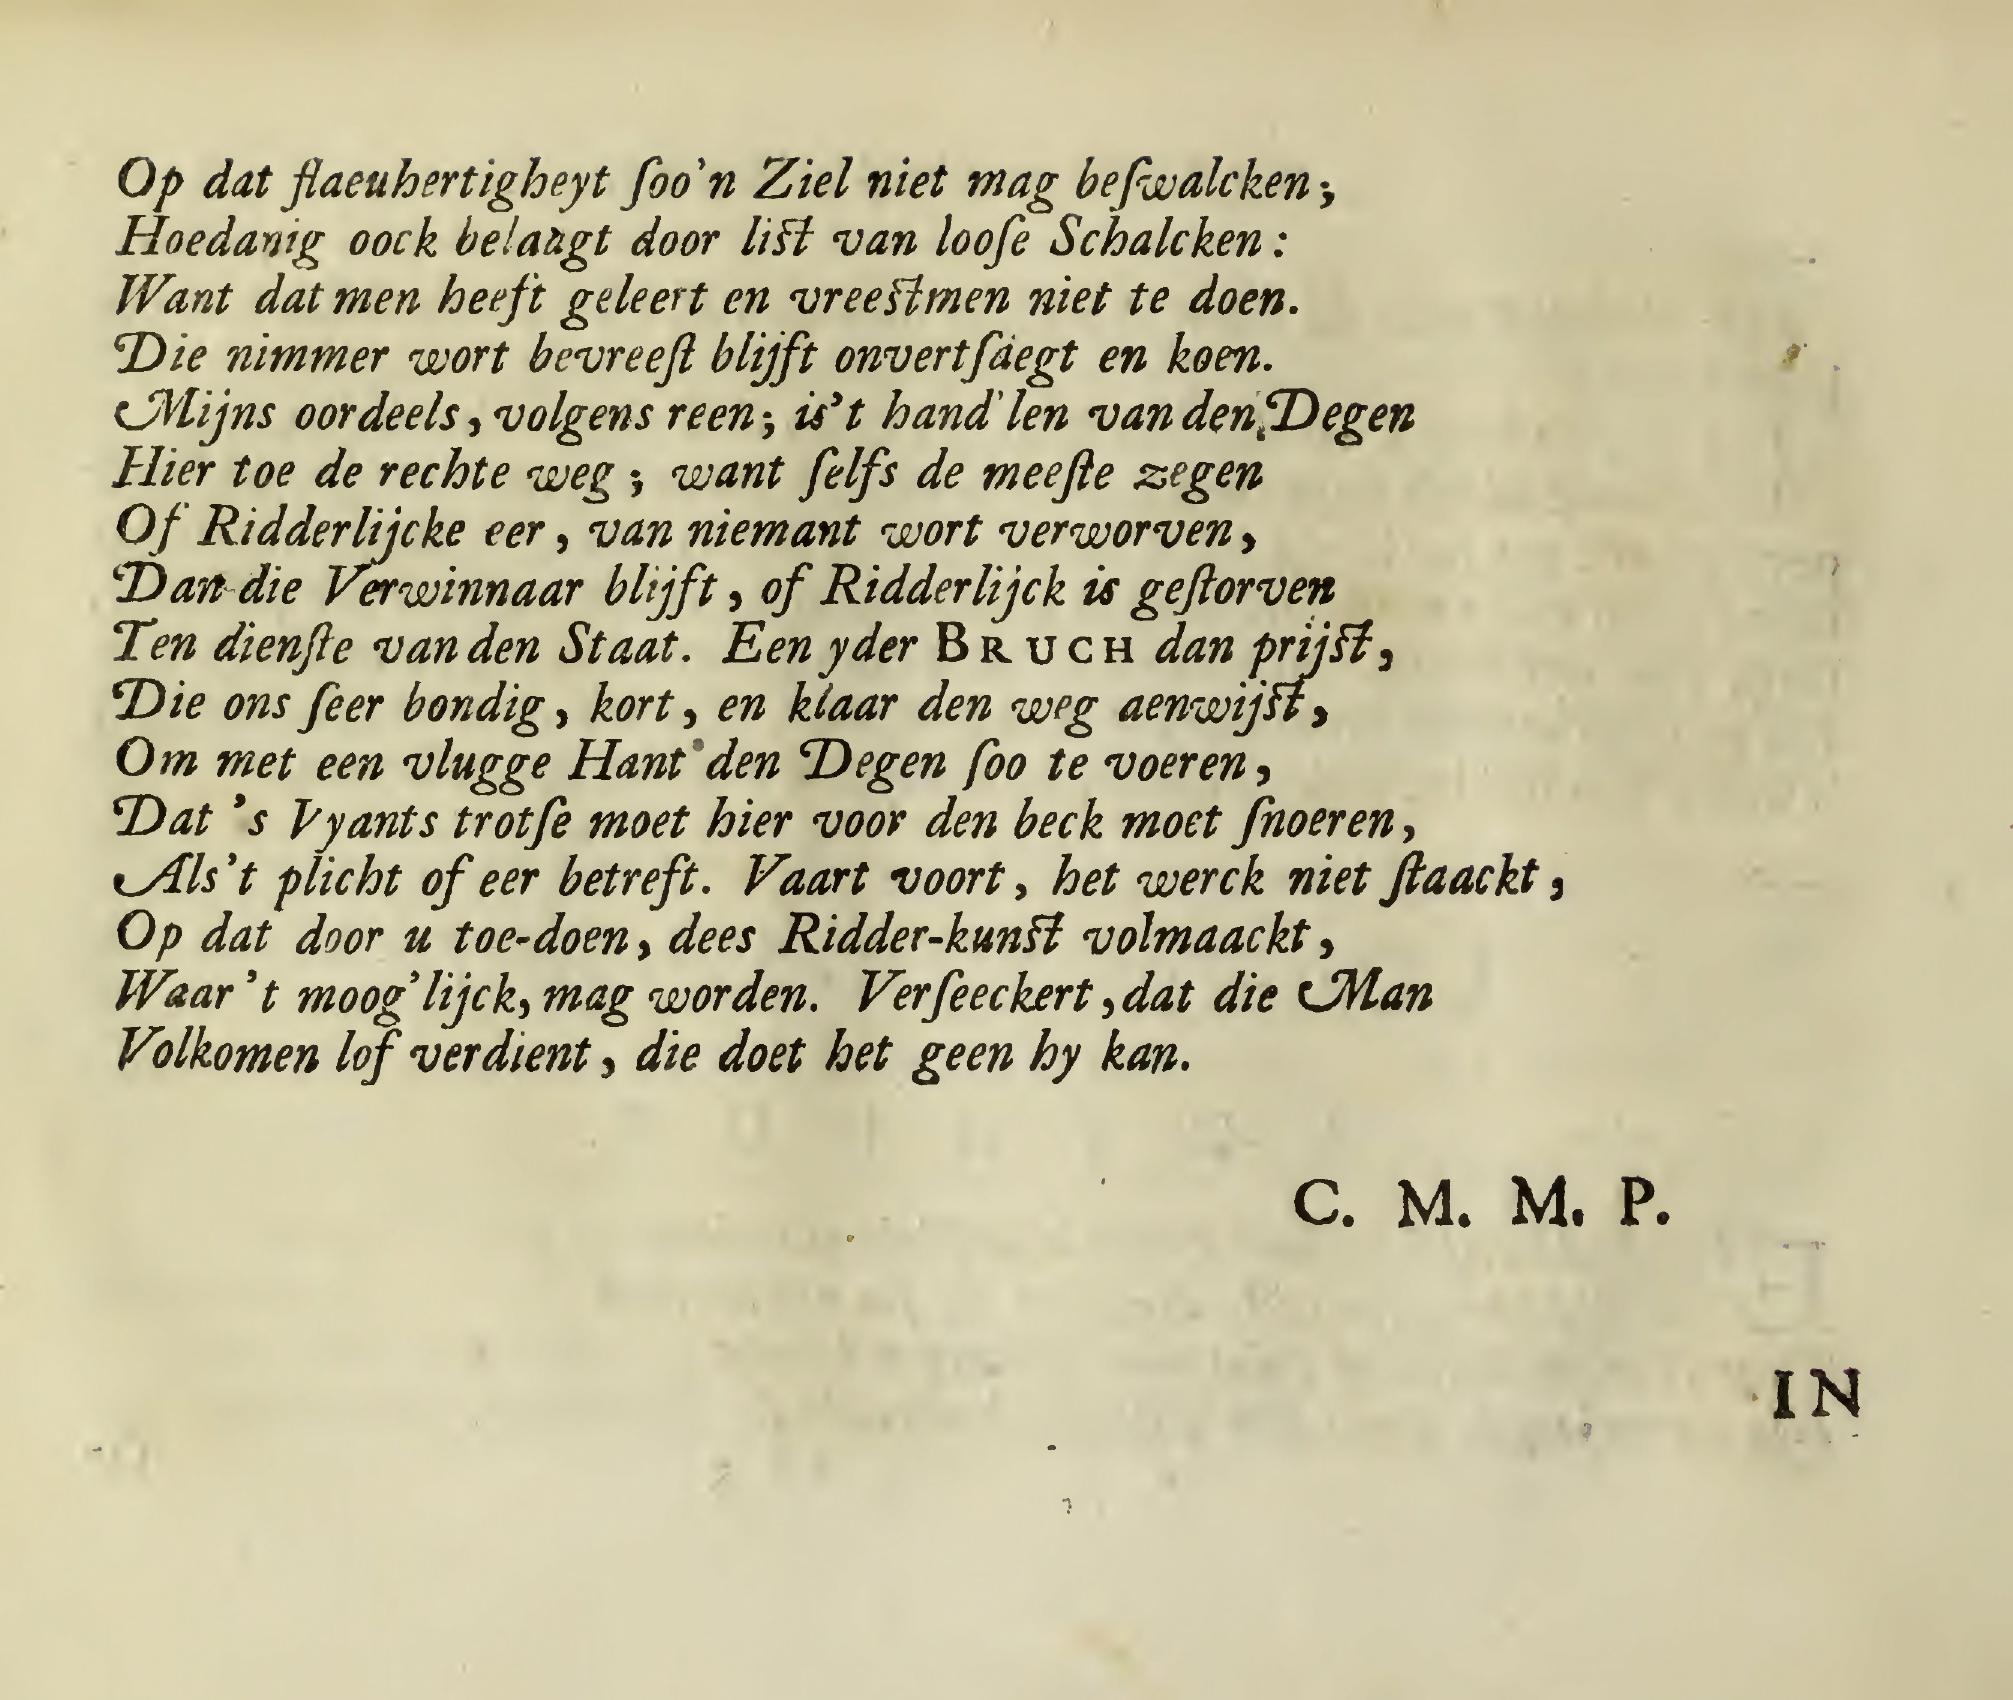 Op dat flaeuhertigheyt ſoo'n Ziel niet mag beſwalcken;
Hoedanig oock belaagt door list van looſe Schalcken:
Want dat men heeft geleert en vreestmen niet te doen.
Die nimmer wort bevreeſt blijft onvertſaegt en koen.
Mijns oordeels, volgens reen; is't hand'len van den Degen
Hier toe de rechte weg; want ſelfs de meeſte zegen
Of Ridderlijcke eer, van niemant wort verworven,
Dan die Verwinnaar blijft, of Ridderlijck is geſtorven
Ten dienſte van den Staat. Een yder BRUCH dan prijst,
Die ons ſeer bondig, kort, en klaar den weg aenwijst,
Om met een vlugge Hant den Degen ſoo te voeren,
Dat 's Vyants trotſe moet hier voor den beck moet ſnoeren,
Als't plicht of eer betreft. Vaart voort, het werck niet ſtaackt,
Op dat door u toe-doen, dees Ridder-kunst volmaackt,
Waar 't moog'lijck, mag worden. Verſeeckert, dat die Man
Volkomen lof verdient, die doet het geen hy kan.
C. M. M. P.
IN